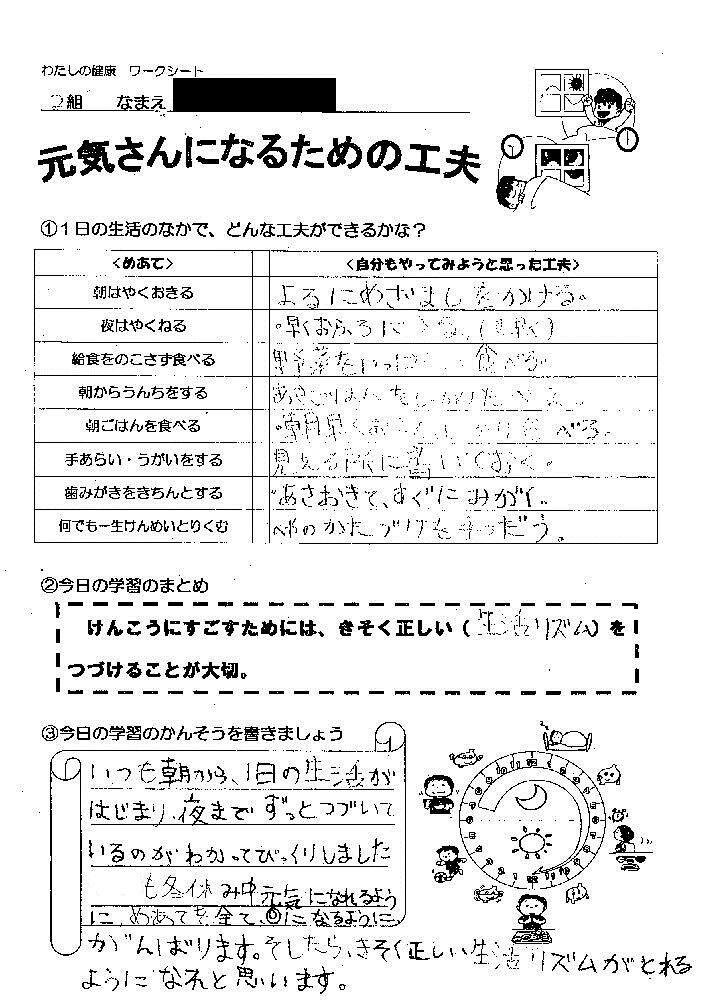 わたしの健康 ワークシート
2組 なまえ
元気さんになるための工夫
①1日の生活のなかで、どんな工夫ができるかな？
<めあて> <自分もやってみようと思った工夫>
朝はやくおきる よるにめざましをかける。
夜はやくねる ・早くおふろに
給食をのこさず食べる 野菜をいっぱい食べる。
朝からうんちをする あさごはんを
朝ごはんを食べる ・朝早くおき
手あらい・うがいをする 見える所に書いておく。
歯みがきをきちんとする ・あさおきて、すぐにみがく。
何でも一生けんめいとりくむ へやのかたづけをてつだう。
②今日の学習のまとめ
けんこうにすごすためには、きそく正しい（生活リズム）を
つづけることが大切。
③今日の学習のかんそうを書きましょう
いつも朝から、1日の生活が
はじまり、夜までずっとつづいて
いるのがわかってびっくりしました
も冬休み中元気になれるよう
に、めあてを全て、◎になるように
がんばります。そしたら、きそく正しい生活リズムがとれる
ようになれと思います。